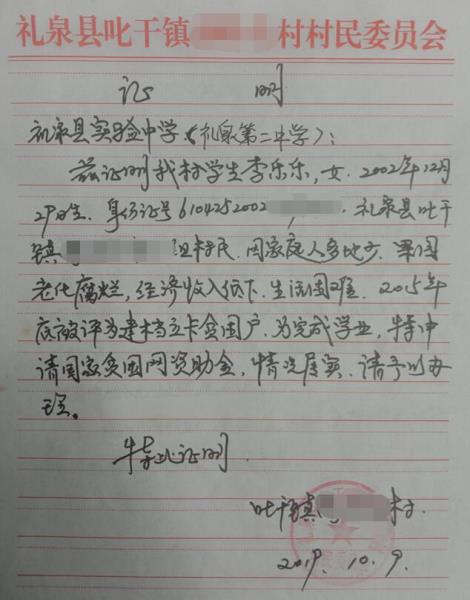 礼泉县叱干镇 村村民委员会
证 明
礼泉县实验中学（礼泉第二中学）：
兹证明我村学生李乐乐，女．2002年12月
29日生．身份证号6104252002 ．礼泉县叱干
镇 组村民．因家庭人多地少．果园
老化腐烂，经济收入低下．生活困难．2015年
底被评为建档立卡贫困户．为完成学业，特申
请国家贫困 资助金，情况属实．请予以办
理。
特此证明．
叱干镇 村．
2019．10．9．